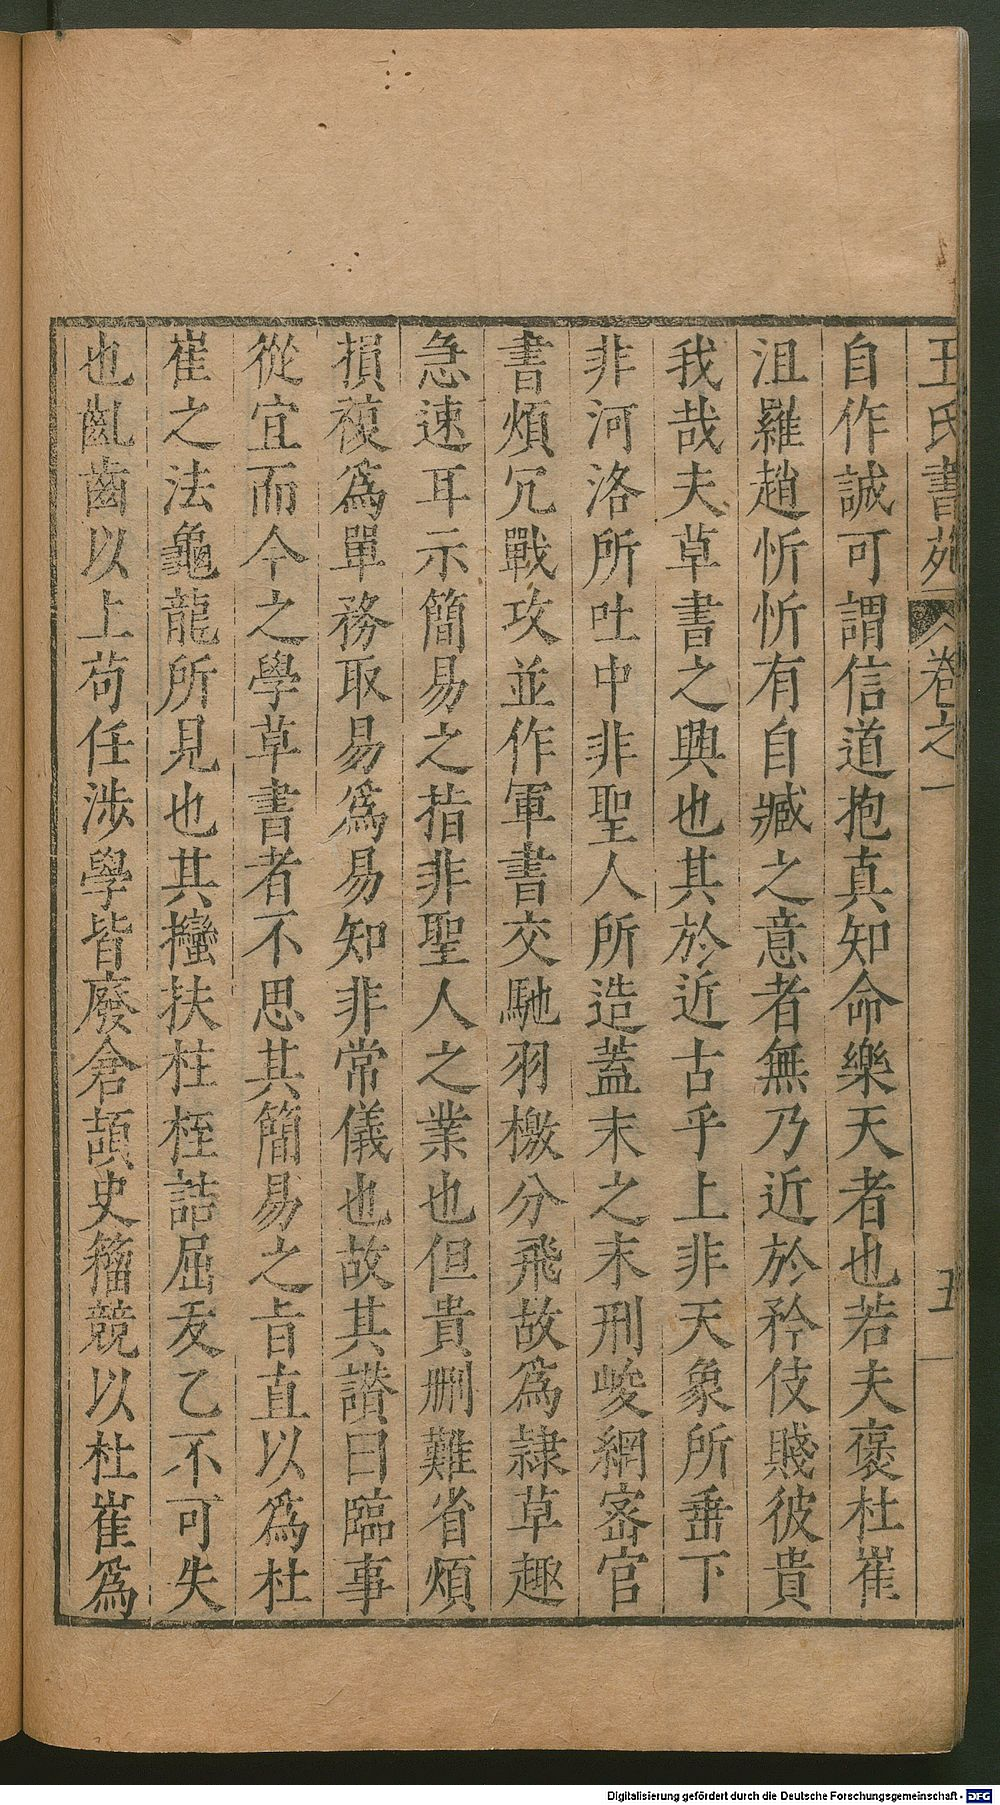 王氏書苑 卷之一 五
自作誠可謂信道抱真知命樂天者也若夫褒杜崔
沮羅趙忻忻有自臧之意者無乃近於矜伎賤彼貴
我哉夫草書之興也其於近古乎上非天象所垂下
非河洛所吐中非聖人所造蓋末之末刑峻網宻官
書煩冗戰攻並作軍書交馳羽檄分飛故爲隷草趣
急速耳示簡易之指非聖人之業也但貴删難省煩
損複爲單務取易爲易知非常儀也故其讃曰臨事
從宜而今之學草書者不思其簡易之旨直以爲杜
崔之法龜龍所見也其㩻扶柱桎詰屈犮乙不可失
也齓齒以上苟任涉學皆廢倉頡史籀競以杜崔爲
Digitalisierung gefördert durch die Deutsche Forschungsgemeinschaft - DFG